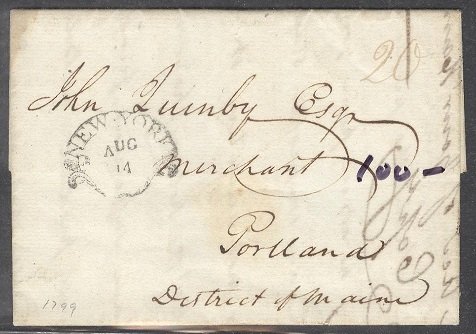 20
John Quinby Esqr
NEW-YORK
AUG
14
Merchant
100-
Portland
District of Maine
1799